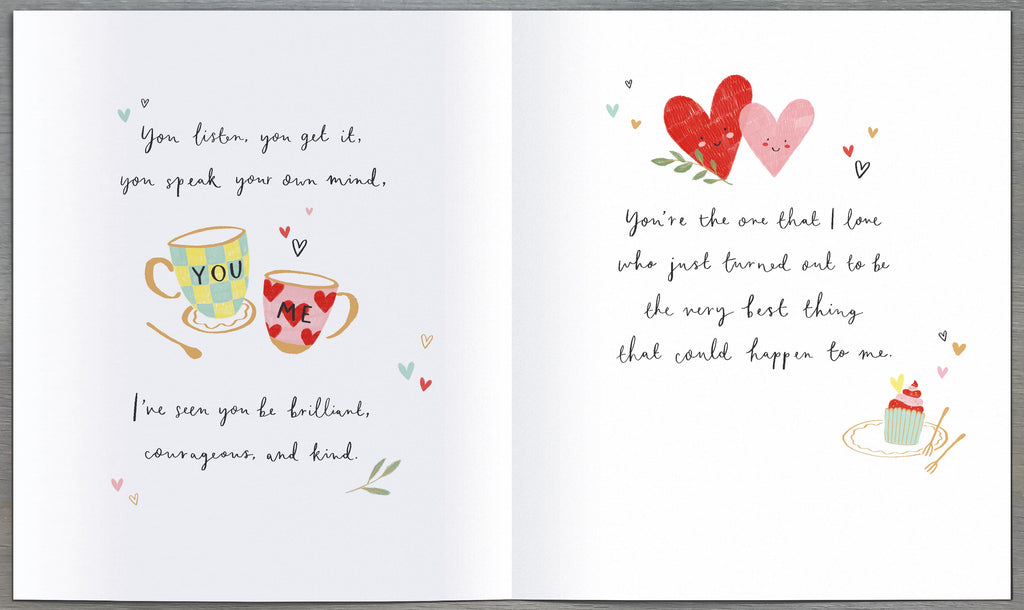 You listen, you get it,
you speak your own mind,
YOU
ME
I've seen you be brilliant,
courageous, and kind.
You're the one that I love
who just turned out to be
the very best thing
that could happen to me.